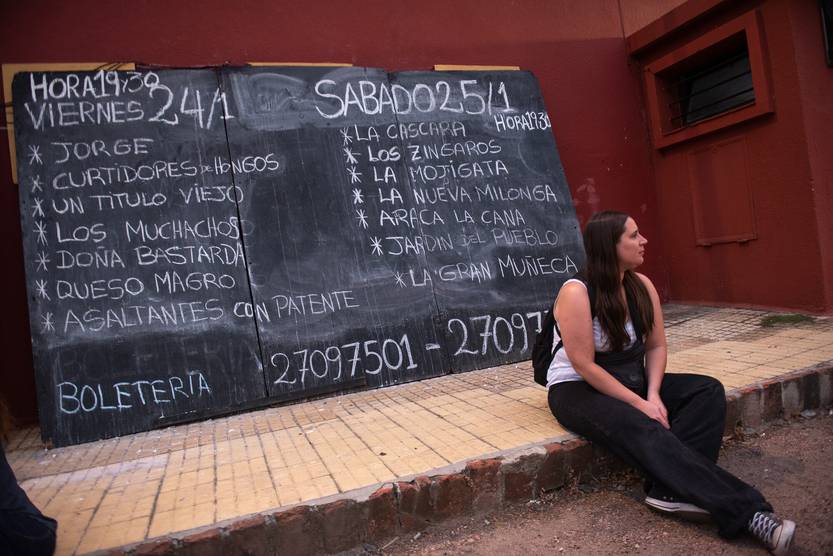 HORA 19:30
VIERNES 24/1
* JORGE
* CURTIDORES DE HONGOS
* UN TITULO VIEJO
* LOS MUCHACHOS
* DOÑA BASTARDA
* QUESO MAGRO
* ASALTANTES CON PATENTE
SABADO 25/1
HORA 19:30
* LA CASCARA
* LOS ZINGAROS
* LA MOJIGATA
* LA NUEVA MILONGA
* ARACA LA CANA
* JARDIN DEL PUEBLO
* LA GRAN MUÑECA
BOLETERIA
27097501 -